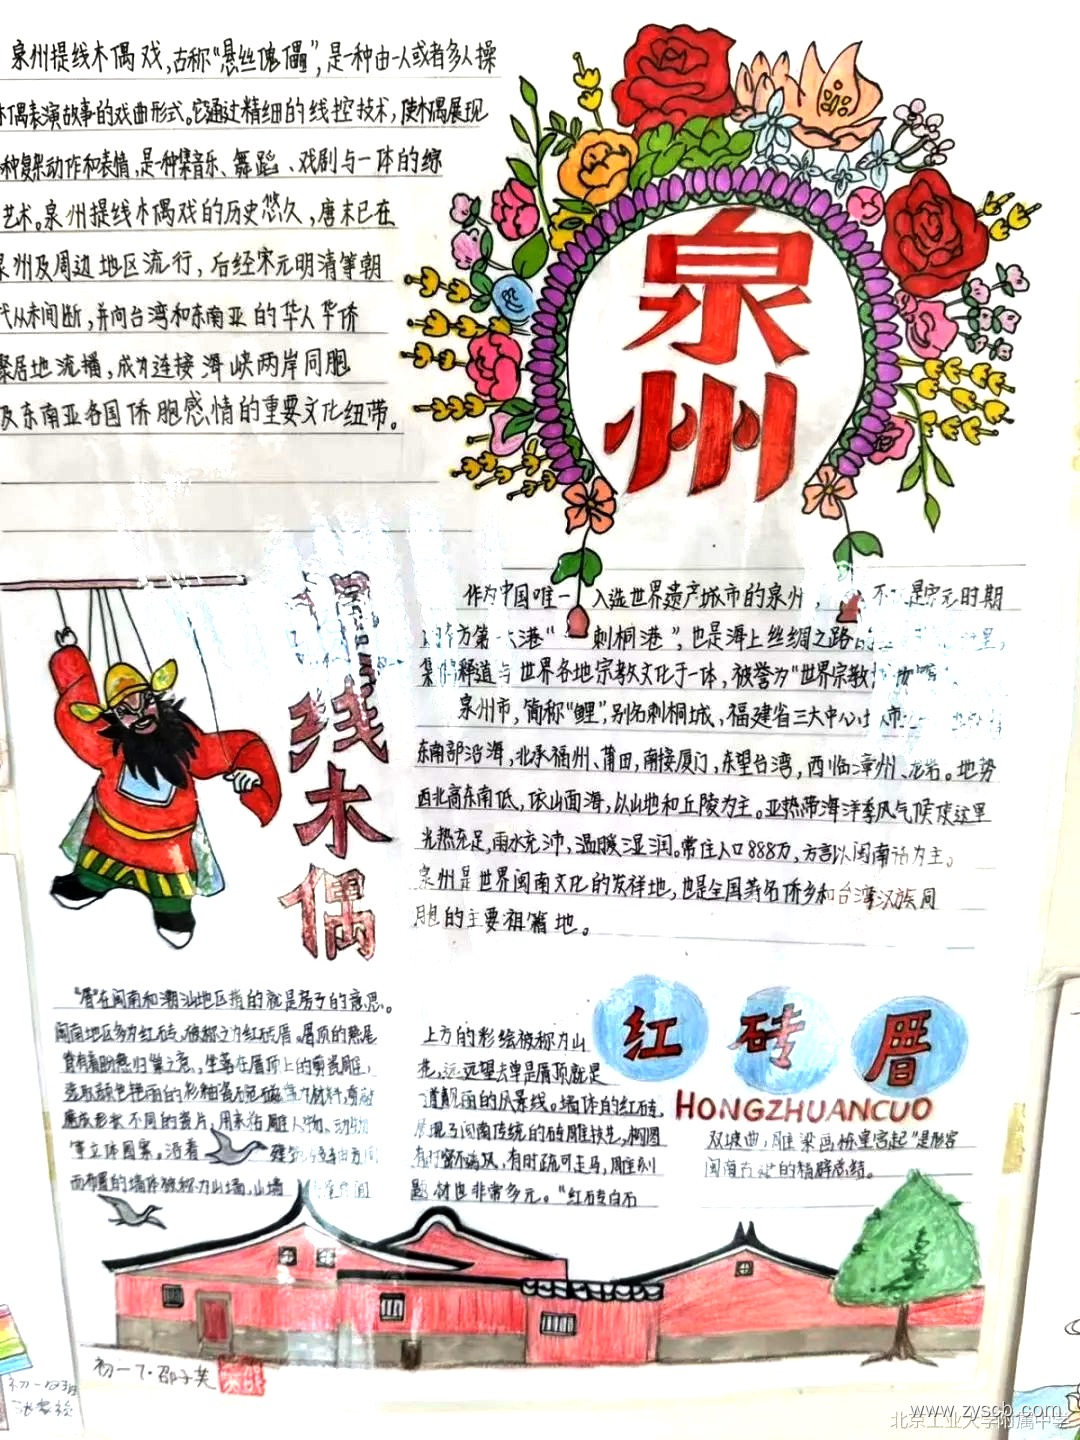 泉州提线木偶戏,古称“悬丝傀儡”,是一种由一人或者多人操
木偶表演故事的戏曲形式。它通过精细的线控技术,使木偶展现
种复杂动作和表情,是一种集音乐、舞蹈、戏剧与一体的综
艺术。泉州提线木偶戏的历史悠久,唐末已在
泉州及周边地区流行,后经宋元明清等朝
代从未间断,并向台湾和东南亚的华人华侨
聚居地流播,成为连接海峡两岸同胞
及东南亚各国侨胞感情的重要文化纽带。
泉
州
线
木
偶
作为中国唯一 入选世界遗产城市的泉州, 不 是宋元时期
方第 大港“ 刺桐港”,也是海上丝绸之路的 里,
释道与世界各地宗教文化于一体,被誉为“世界宗教
泉州市,简称“鲤”,别名刺桐城,福建省三大中心 市
东南部沿海,北承福州、莆田,南接厦门,东望台湾,西临漳州、龙岩。地势
西北高东南低,依山面海,以山地和丘陵为主。亚热带海洋季风气候使这里
光热充足,雨水充沛,温暖湿润。常住人口888万,方言以闽南话为主。
泉州是世界闽南文化的发祥地,也是全国著名侨乡和台湾汉族同
胞的主要祖籍地。
“厝”在闽南和潮汕地区指的就是房子的意思。
闽南地区多为红砖,被称之为红砖厝。厝顶的燕尾
脊有着盼燕归巢之意,坐落在厝顶上的剪瓷雕,
选取颜色艳丽的彩釉瓷 为材料,剪
成形状不同的瓷片,用来 雕人物、动物
等立体图案。沿着 建
而布置的墙体被称为山墙,山墙
上方的彩绘被称为山
花,远远望去单是厝顶就是
一道靓丽的风景线。墙体的红砖,
展现了闽南传统的砖雕技艺,
有时密不透风,有时疏可走马,雕刻
题材也非常多元。“红砖白石
红砖厝
HONGZHUANCUO
双坡曲,雕梁画栋皇宫起”是形容
闽南古 的精辟总结。
初一7·邵子芙
初一
www.zyscb.com
北京工业大学附属中学